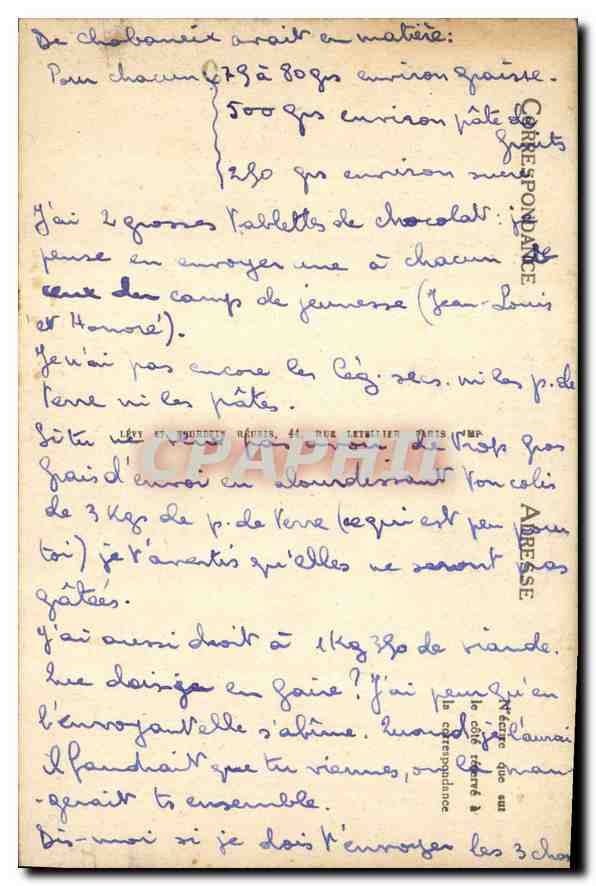 De chabaneix avait en matière:
Pour chacun 75 à 80 grs environ graisse.
500 grs environ pâte de
fruits
250 grs environ sucre
J'ai 2 grosses tablettes de chocolat: je
pense en envoyer une à chacun de
ceux du camp de jeunesse (Jean-Louis
et Honoré).
Je n'ai pas encore les lég. secs. ni les p. de
terre ni les pâtes.
Si tu ne veux pas avoir de trop gros
frais d'envoi en alourdissant ton colis
de 3 Kgs de p. de terre (ce qui est peu pour
toi) je t'avertis qu'elles ne seront pas
gâtées.
J'ai aussi droit à 1Kg 350 de viande.
Que dois-je en faire? J'ai peur qu'en
l'envoyant elle s'abîme. Quand je l'aurai
il faudrait que tu viennes, on la man
-gerait ts ensemble.
Dis-moi si je dois t'envoyer les 3 chos
CORRESPONDANCE
ADRESSE
N'écrire que sur
le côté réservé à
la correspondance
LÉVY ET NEURDEIN RÉUNIS, 44, RUE LETELLIER PARIS IMP
CPAPHIL